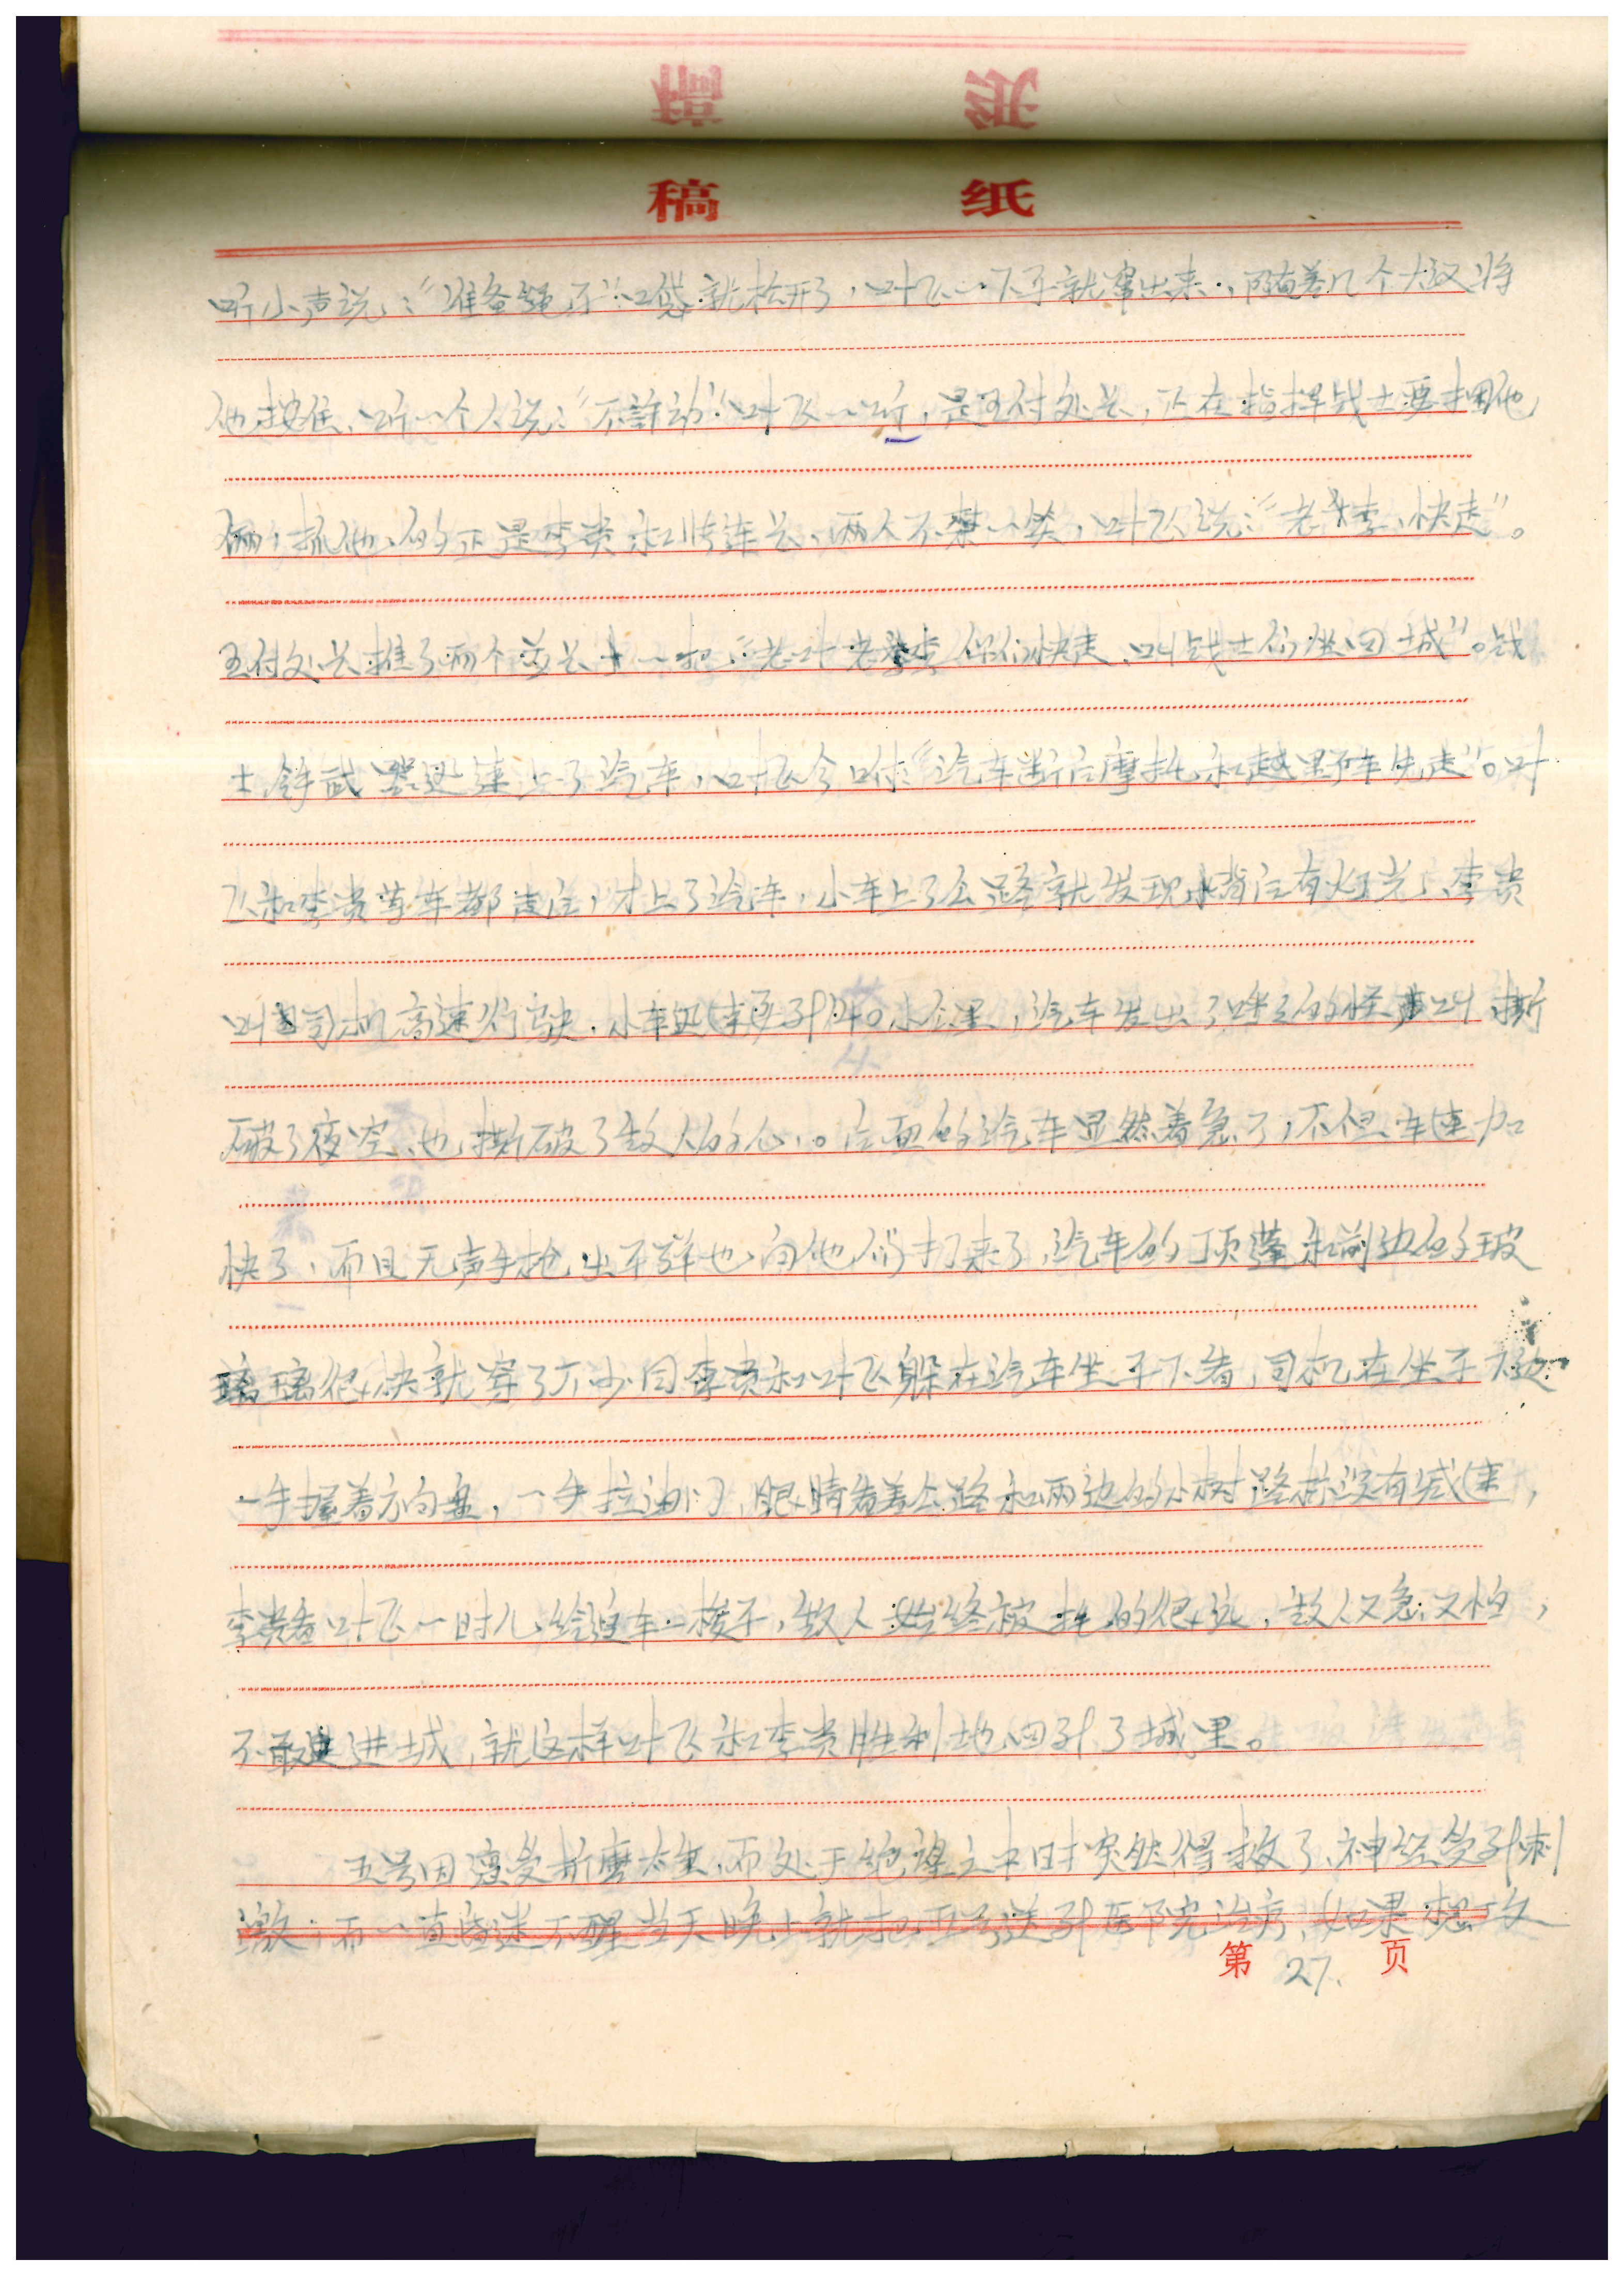 稿 纸
听小声说：“准备绳子”口袋就松开了，叶飞一下子就窜出来，随着几个大汉将
他按住，听一个人说：“不許动”叶飞一听，是王付处长，正在指挥战士要捆他
俩，抓他的正是李贵和连长，两人不禁一笑，叶飞说：“老李，快走”。
王付处长推了两个 长一把“老叶老李你们快走，叫战士们坐回城”。战
士 武器迅速上了汽车，叶飞令咐：“汽车断后摩托和越野车先走”。叶
飞和李贵等车都走后，才上了汽车，小车上了公路就发现背后有灯光，李贵
叫司机高速行驶，小车迅速到 公里，汽车发出了 的怪声叫撕
破了夜空，也撕破了敌人的心。后面的汽车显然着急了，不但车速加
快了，而且无声手枪出不群也向他们打来了，汽车的顶蓬和前边的玻
璃很快就穿了不少 李贵和叶飞躲在汽车坐子下看，司机在坐子 边
一手握着方向盘，一手拉油门，眼睛看着公路和两边的小树路标没有减速，
李贵看叶飞一时儿给追车一梭子，敌人始终被 的很远，敌人又急又怕，
不敢进城，就这样叶飞和李贵胜利地回到了城里。
五号因 受折磨太重，而处于绝望之中时突然得救了，神经受到刺
激，而一直昏迷不醒当天晚上就把五号送到医院治病，如果想攻
第 27. 页